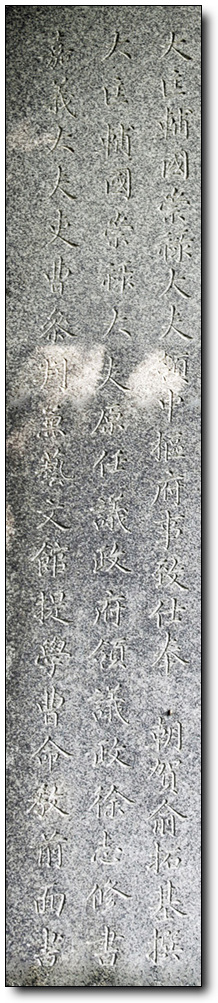 大匡輔國崇祿大夫領中樞府事致仕奉 朝賀俞拓基撰
大匡輔國崇祿大夫原任議政府領議政徐志修書
嘉義大夫吏曹參判兼藝文館提學曹命敎前面書